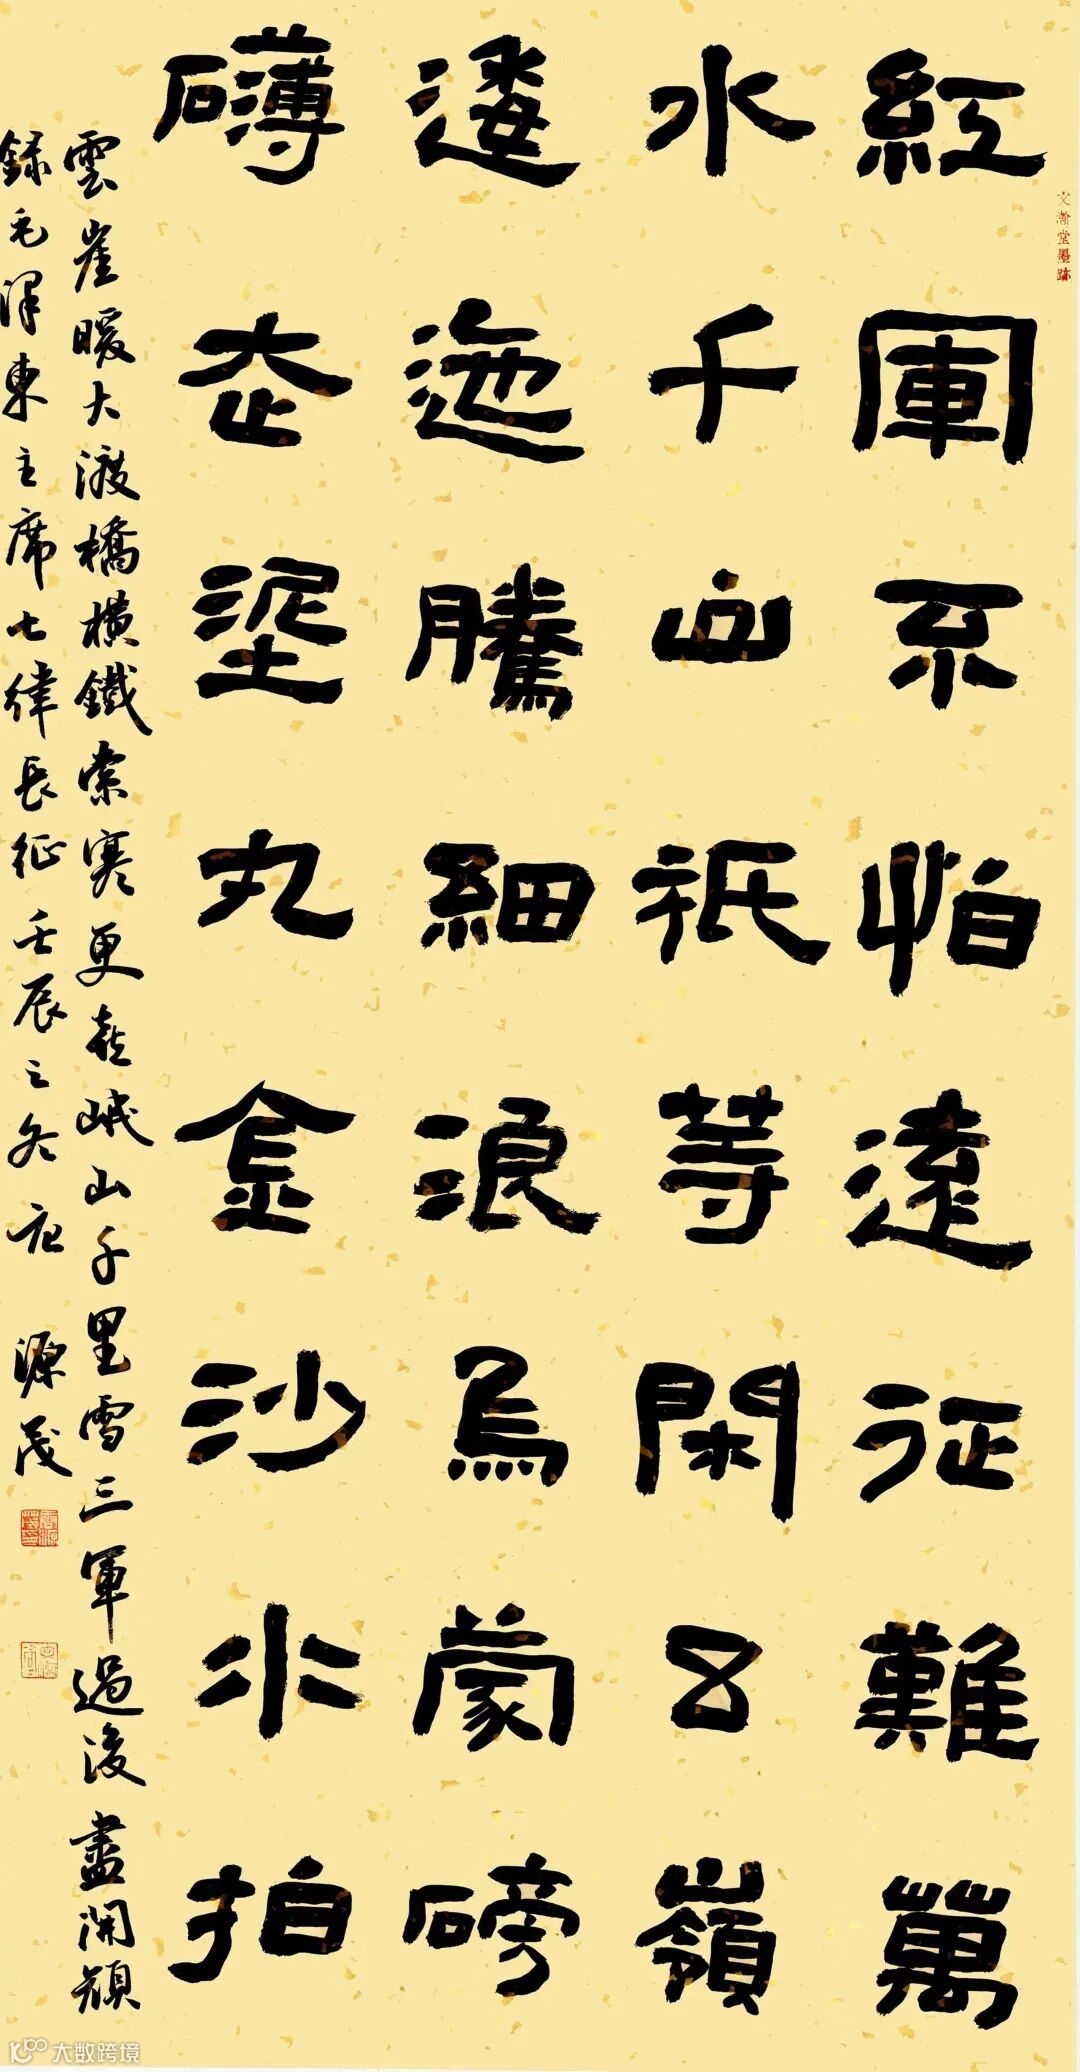 文瀚堂墨跡
紅軍不怕遠征難萬
水千山祇等閑五嶺
逶迤騰細浪烏蒙磅
礴走埿丸金沙水拍
雲崖暖大渡橋橫鐵索寒更喜岷山千里雪三軍過後盡開顏
錄毛澤東主席七律長征壬辰之冬源茂
大数跨境